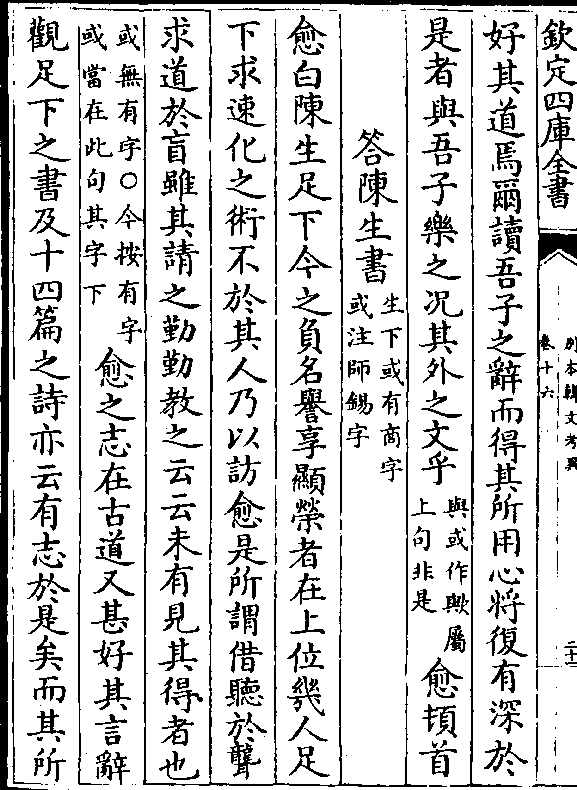 欽定四庫全書
別本韓文考異
卷十六
二十二
好其道焉爾讀吾子之辭而得其所用心將復有深於
是者與吾子樂之況其外之文乎
與或作歟屬
上句非是
愈頓首
答陳生書
生下或有商字
或注師錫字
愈白陳生足下今之負名譽享顯榮者在上位幾人足
下求速化之術不於其人乃以訪愈是所謂借聽於聾
求道於盲雖其請之勤勤教之云云未有見其得者也
或無有字○今按有字
或當在此句其字下
愈之志在古道又甚好其言辭
觀足下之書及十四篇之詩亦云有志於是矣而其所